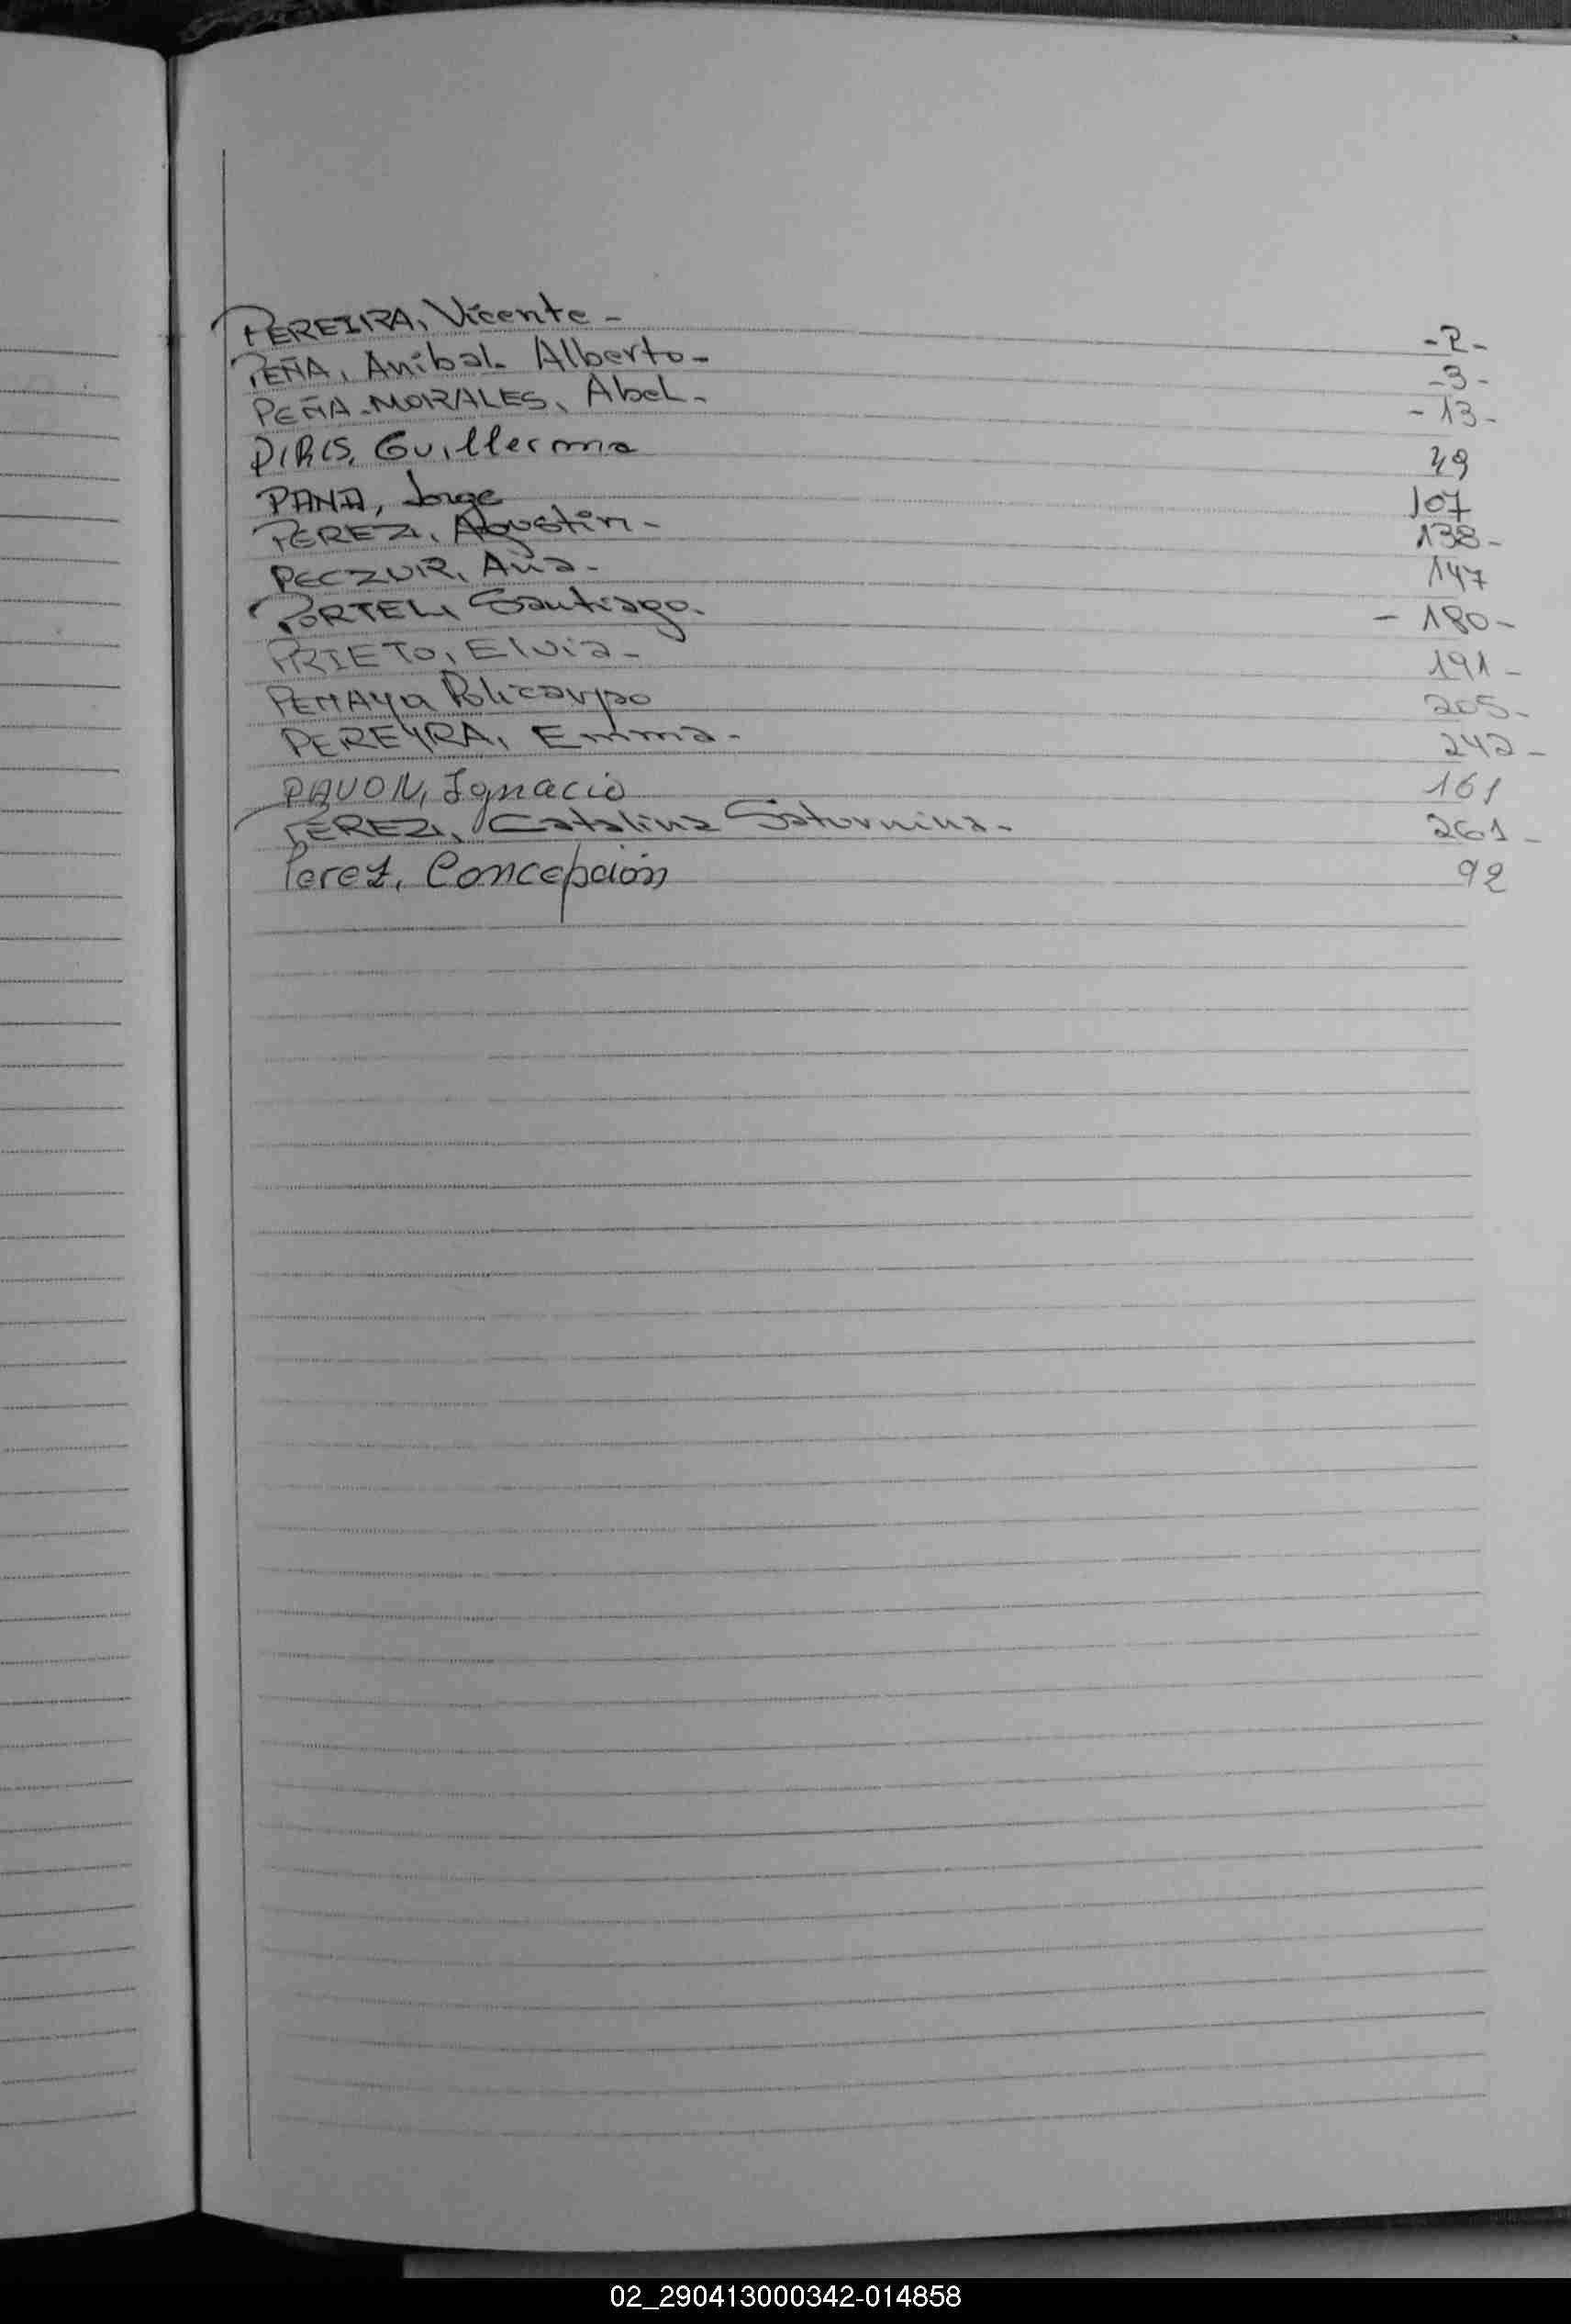 PEREIRA, Vicente - -2-
PEÑA, Anibal Alberto - -3-
PEÑA-MORALES, Abel - -13-
PIRIS, Guillerma 49
PANA, Jorge 107
PEREZ, Agustin - 138-
PECZUR, Ana - 147
PORTEL, Santiago. - 180-
PRIETO, Elvia - 191-
Policarpo 205-
PEREYRA, Emma - 242-
PAVON, Ignacio 161
PEREZ, Catalina Saturnina - 261-
Perez, Concepción 92
02_290413000342-014858